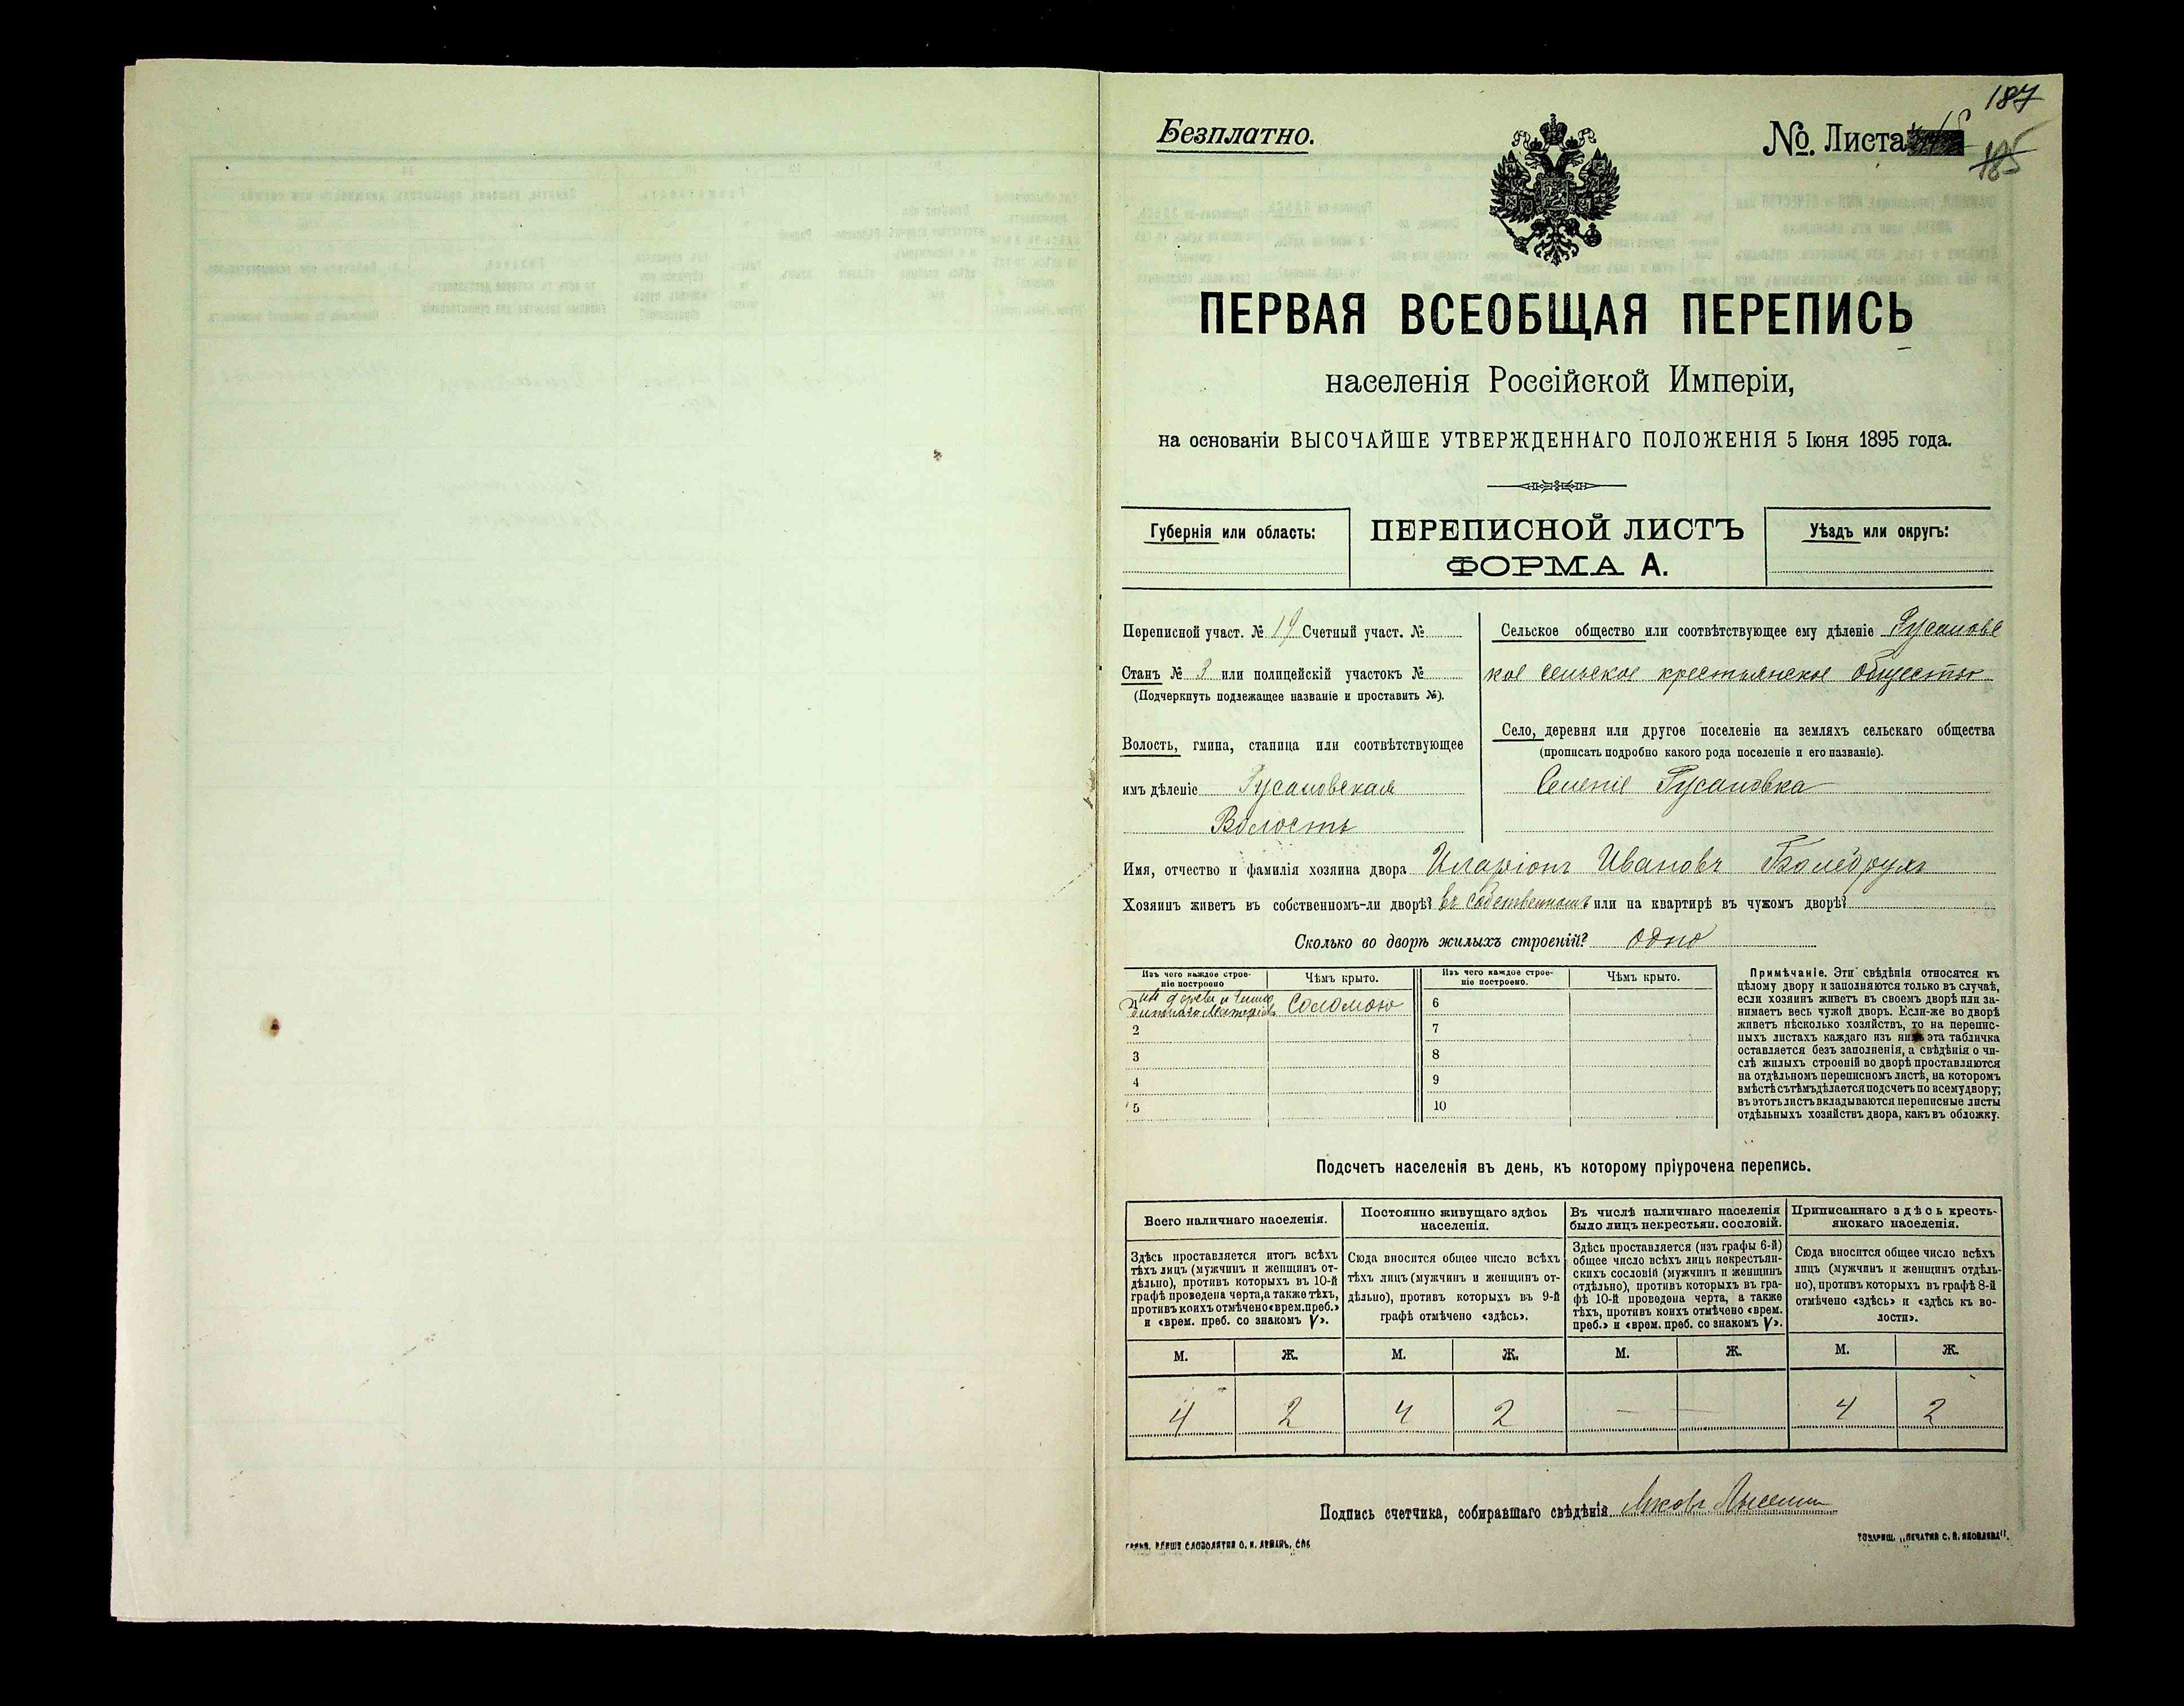 187
Безплатно.
№. Листа
185
ПЕРВАЯ ВСЕОБЩАЯ ПЕРЕПИСЬ
населенія Россійской Имперіи,
на основаніи ВЫСОЧАЙШЕ УТВЕРЖДЕННАГО ПОЛОЖЕНІЯ 5 Іюня 1895 года.
Губернія или область:
ПЕРЕПИСНОЙ ЛИСТЪ
ФОРМА А.
Уѣздъ или округъ:
Переписной участ. № 19 Счетный участ. №
Станъ № 3 или полицейскій участокъ №
(Подчеркнуть подлежащее названіе и проставить №).
Волость, гмина, станица или соотвѣтствующее
имъ дѣленіе Гусановская
Волость
Сельское общество или соотвѣтствующее ему дѣленіе Гусановс
кое сельское крестьянское общество
Село, деревня или другое поселеніе на земляхъ сельскаго общества
(прописать подробно какого рода поселеніе и его названіе).
Селеніе Гусановка
Имя, отчество и фамилія хозяина двора Иларіонъ Ивановъ
Хозяинъ живетъ въ собственномъ-ли дворѣ? въ собственномъ или на квартирѣ въ чужомъ дворѣ?
Сколько во дворѣ жилыхъ строеній? одно
Изъ чего каждое строе-
ніе построено
Чѣмъ крыто.
Изъ чего каждое строе-
ніе построено.
Чѣмъ крыто.
Соломою
2
3
4
5
6
7
8
9
10
Примѣчаніе. Эти свѣдѣнія относятся къ
цѣлому двору и заполняются только въ случаѣ,
если хозяинъ живетъ въ своемъ дворѣ или за-
нимаетъ весь чужой дворъ. Если-же во дворѣ
живетъ нѣсколько хозяйствъ, то на перепис-
ныхъ листахъ каждаго изъ нихъ эта табличка
оставляется безъ заполненія, а свѣдѣнія о чи-
слѣ жилыхъ строеній во дворѣ проставляются
на отдѣльномъ переписномъ листѣ, на которомъ
вмѣстѣ съ тѣмъ дѣлается подсчетъ по всему двору;
въ этотъ листъ вкладываются переписные листы
отдѣльныхъ хозяйствъ двора, какъ въ обложку.
Подсчетъ населенія въ день, къ которому пріурочена перепись.
Всего наличнаго населенія.
Здѣсь проставляется итогъ всѣхъ
тѣхъ лицъ (мужчинъ и женщинъ от-
дѣльно), противъ которыхъ въ 10-й
графѣ проведена черта, а также тѣхъ,
противъ коихъ отмѣчено «врем. преб.»
и «врем. преб. со знакомъ V».
Постоянно живущаго здѣсь
населенія.
Сюда вносится общее число всѣхъ
тѣхъ лицъ (мужчинъ и женщинъ от-
дѣльно), противъ которыхъ въ 9-й
графѣ отмѣчено «здѣсь».
Въ числѣ наличнаго населенія
было лицъ некрестьян. сословій.
Здѣсь проставляется (изъ графы 6-й)
общее число всѣхъ лицъ некрестьян-
скихъ сословій (мужчинъ и женщинъ
отдѣльно), противъ которыхъ въ гра-
фѣ 10-й проведена черта, а также
тѣхъ, противъ коихъ отмѣчено «врем.
преб.» и «врем. преб. со знакомъ V».
Приписаннаго здѣсь кресть-
янскаго населенія.
Сюда вносится общее число всѣхъ
лицъ (мужчинъ и женщинъ отдѣль-
но), противъ которыхъ въ графѣ 8-й
отмѣчено «здѣсь» и «здѣсь къ во-
лости».
М. Ж. М. Ж. М. Ж. М. Ж.
4 2 4 2 — — 4 2
Подпись счетчика, собиравшаго свѣдѣнія Яковъ
ТОВАРИЩ. „ПЕЧАТНЯ С. П. ЯКОВЛЕВА".